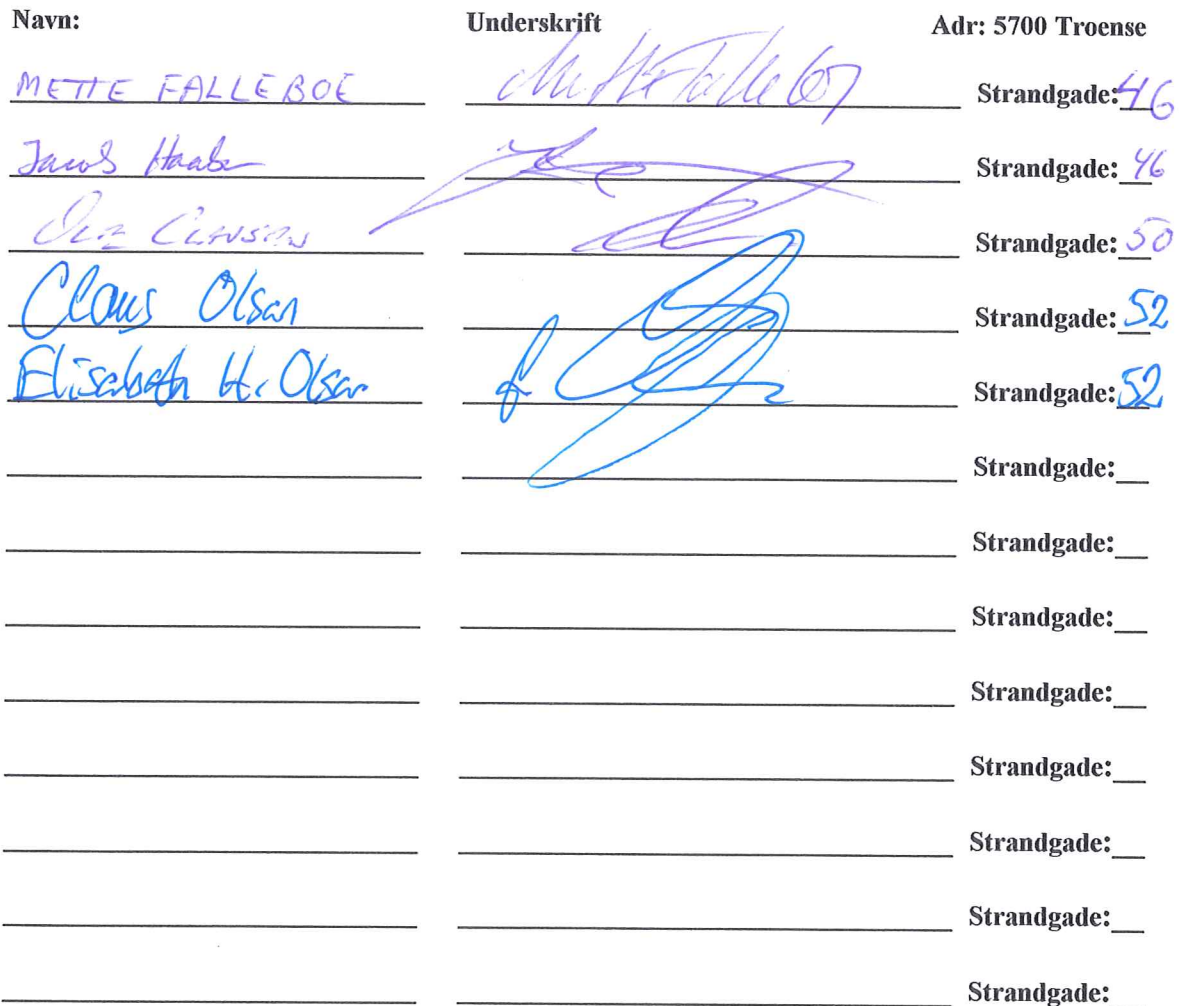 Navn: Underskrift Adr: 5700 Troense
METTE FALLEBOE Mette Falleboe Strandgade: 46
Jacob Strandgade: 46
Strandgade: 50
Claus Olsen Strandgade: 52
Elisabeth H. Olsen Strandgade: 52
Strandgade:
Strandgade:
Strandgade:
Strandgade:
Strandgade:
Strandgade:
Strandgade:
Strandgade: